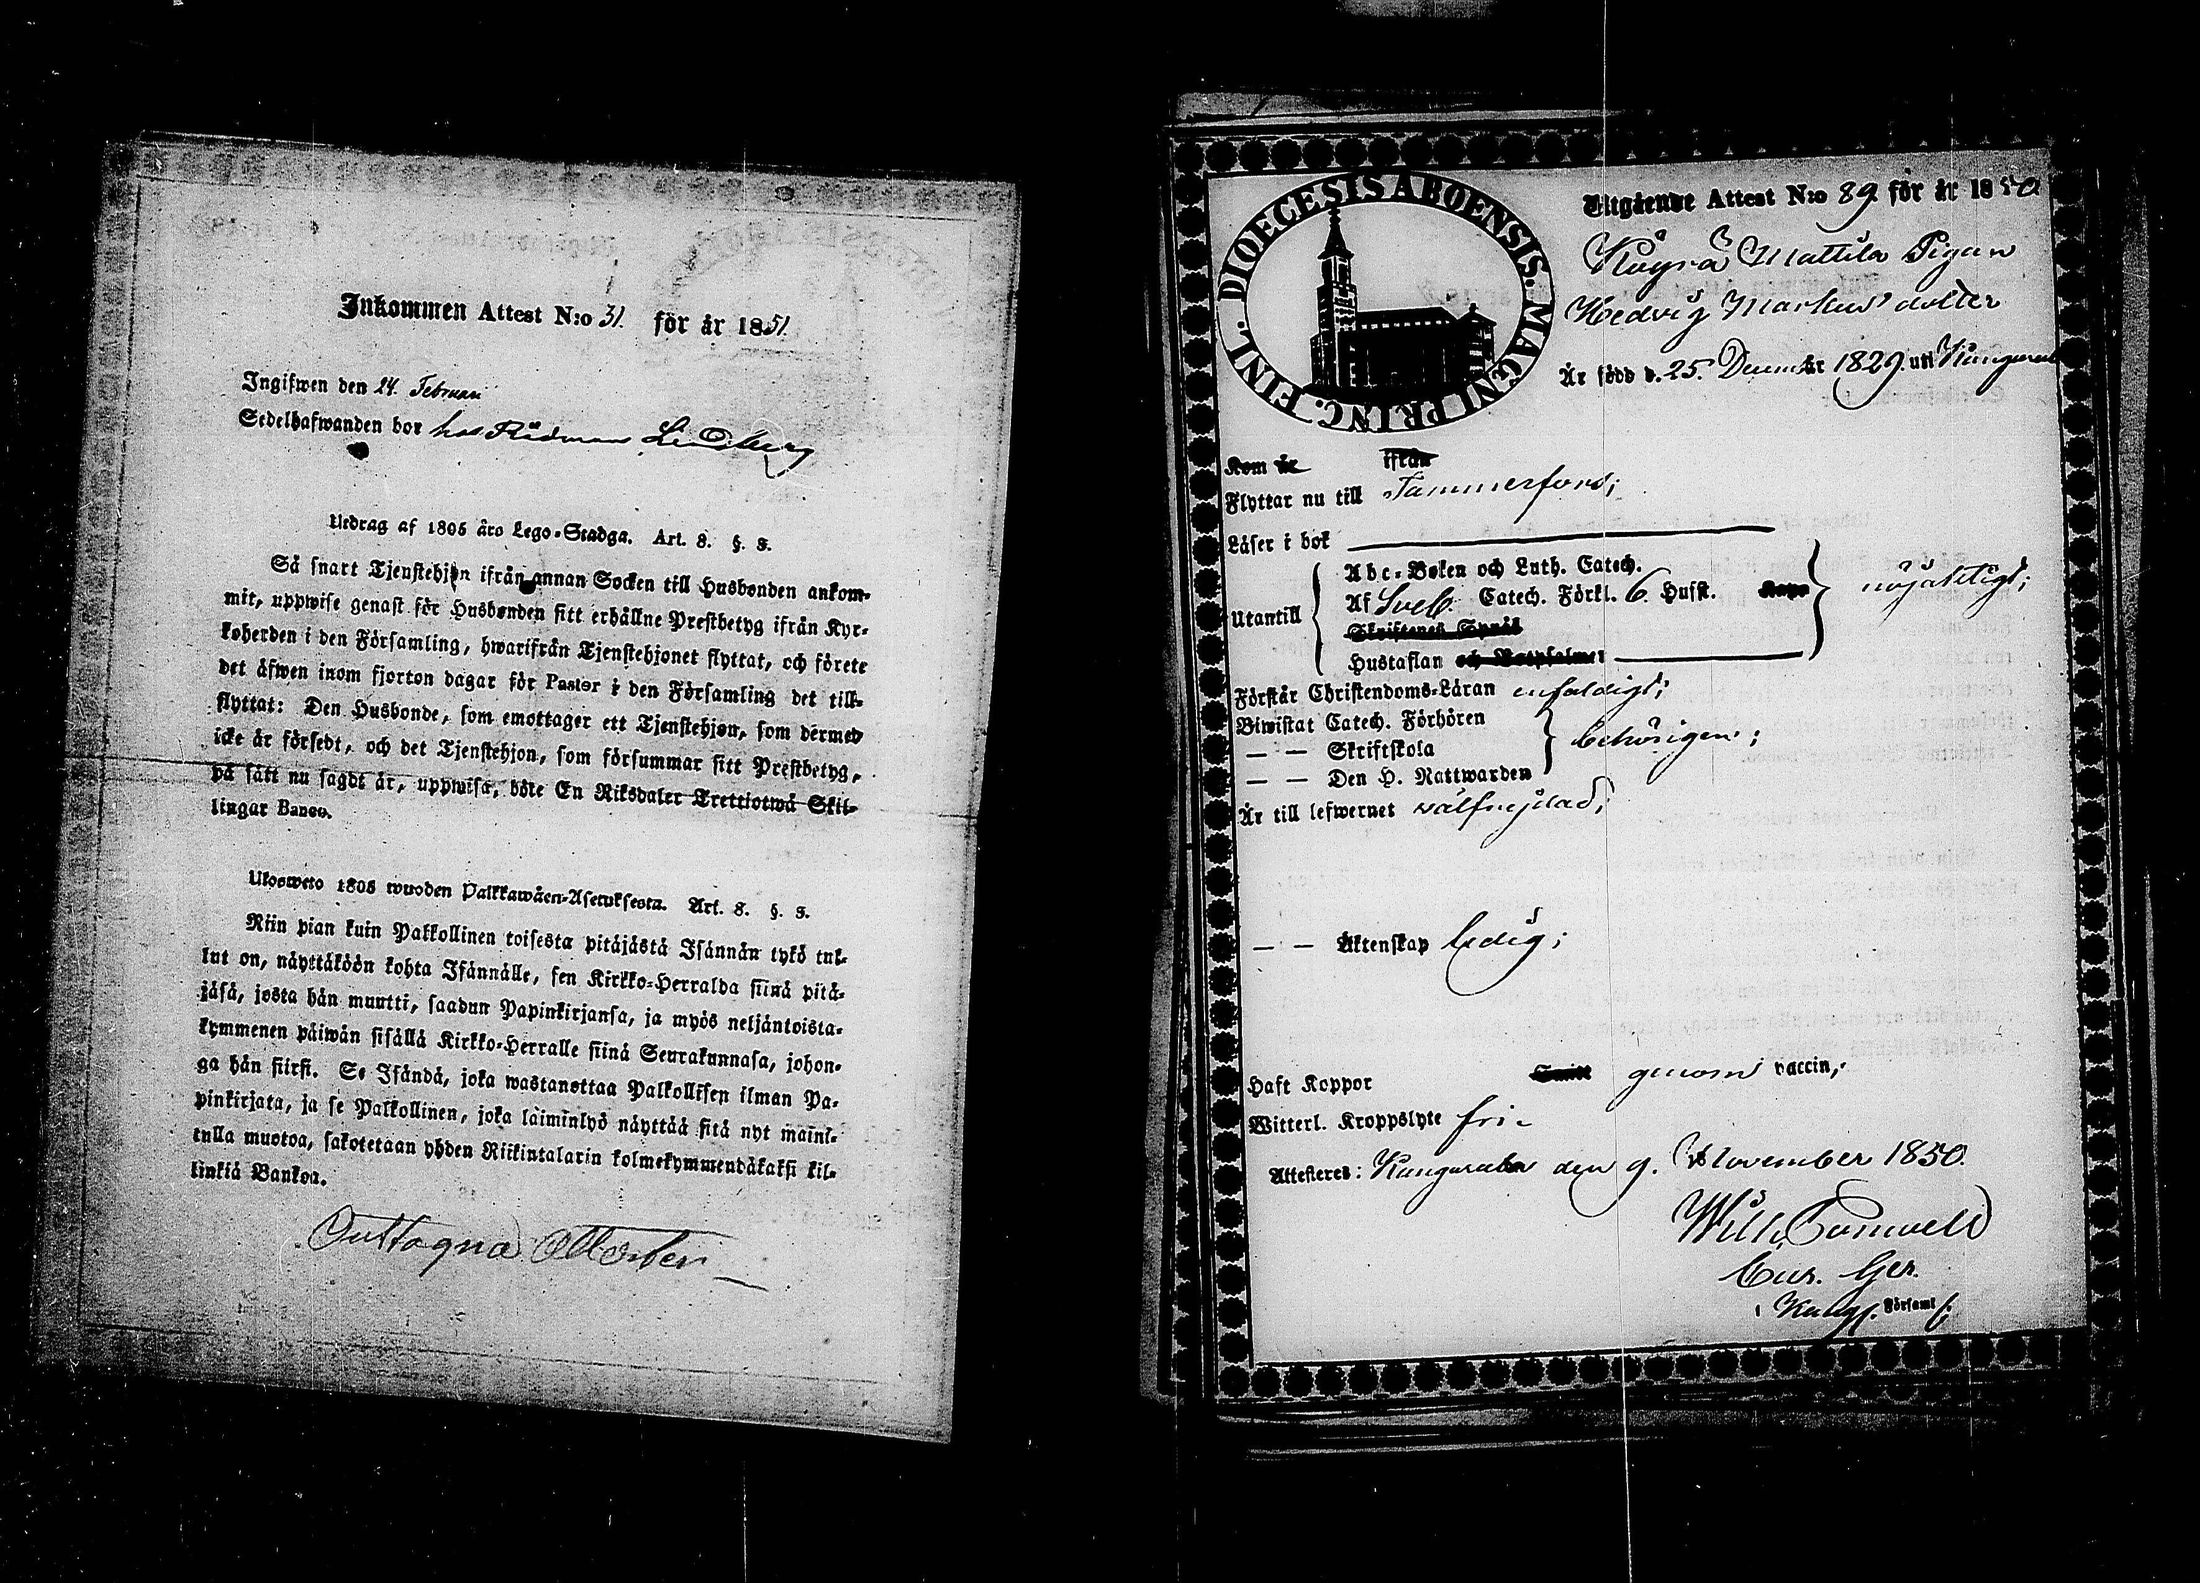 Inkommen Attest N:o 31. för år 1851.
Ingifwen den 24. Februari
Sedelhafwanden bor hos Rådman Lindberg
Utdrag af 1805 års Lego-Stadga. Art. 8. §. 3.
Så snart Tjenstehjon ifrån annan Socken till Husbonden ankom-
mit, uppwise genast för Husbonden sitt erhållne Prestbetyg ifrån Kyr-
koherden i den Församling, hwarifrån Tjenstehjonet flyttat, och förete
det äfwen inom fjorton dagar för Pastor i den Församling det till-
flyttat: Den Husbonde, som emottager ett Tjenstehjon, som dermed
icke är försedt, och det Tjenstehjon, som försummar sitt Prestbetyg,
på sätt nu sagdt är, uppwisa, böte En Riksdaler Trettiotwå Skil-
lingar Banco.
Ulosweto 1805 wuoden Palkkawäen-Asetuksesta. Art. 8. §. 3.
Niin pian kuin Palkollinen toisesta pitäjästä Isännän tykö tul-
lut on, näyttäköön kohta Isännälle, sen Kirkko-Herralda siinä pitä-
jäsä, josta hän muutti, saadun Papinkirjansa, ja myös neljäntoista-
kymmenen päiwän sisällä Kirkko-Herralle siinä Seurakunnasa, johon-
ga hän siirsi. Se Isändä, joka wastanottaa Palkollisen ilman Pa-
pinkirjata, ja se Palkollinen, joka laiminlyö näyttää sitä nyt maini-
tulla muotoa, sakotetaan yhden Riikintalarin kolmekymmendäkaksi kil-
linkiä Bankoa.
DIOECESIS ABOENSIS. MAGNI PRINC. FINL.
Utgående Attest N:o 89. för år 1850
Mattila Pigan
Hedvig Markus dotter
Är född d. 25. Decembr 1829. uti Kangasala
Kom år ifrån
Flyttar nu till Tammerfors;
Läser i bok
Abc-Boken och Luth. Catech.
Utantill Af Sveb. Catech. Förkl. 6. Husst. nöjaktigt;
Skriftenes Språk
Hustaflan och Botpsalmer
Förstår Christendoms-Läran enfaldigt;
Biwistat Catech. Förhören
— — Skriftskola behörigen;
— — Den H. Nattwarden
Är till lefwernet välfrejdad;
— — Äktenskap ledig;
Haft Koppor genom vaccin,
Witterl. Kroppslyte fri.
Attesteres: Kangasala den 9. November 1850.
Församl